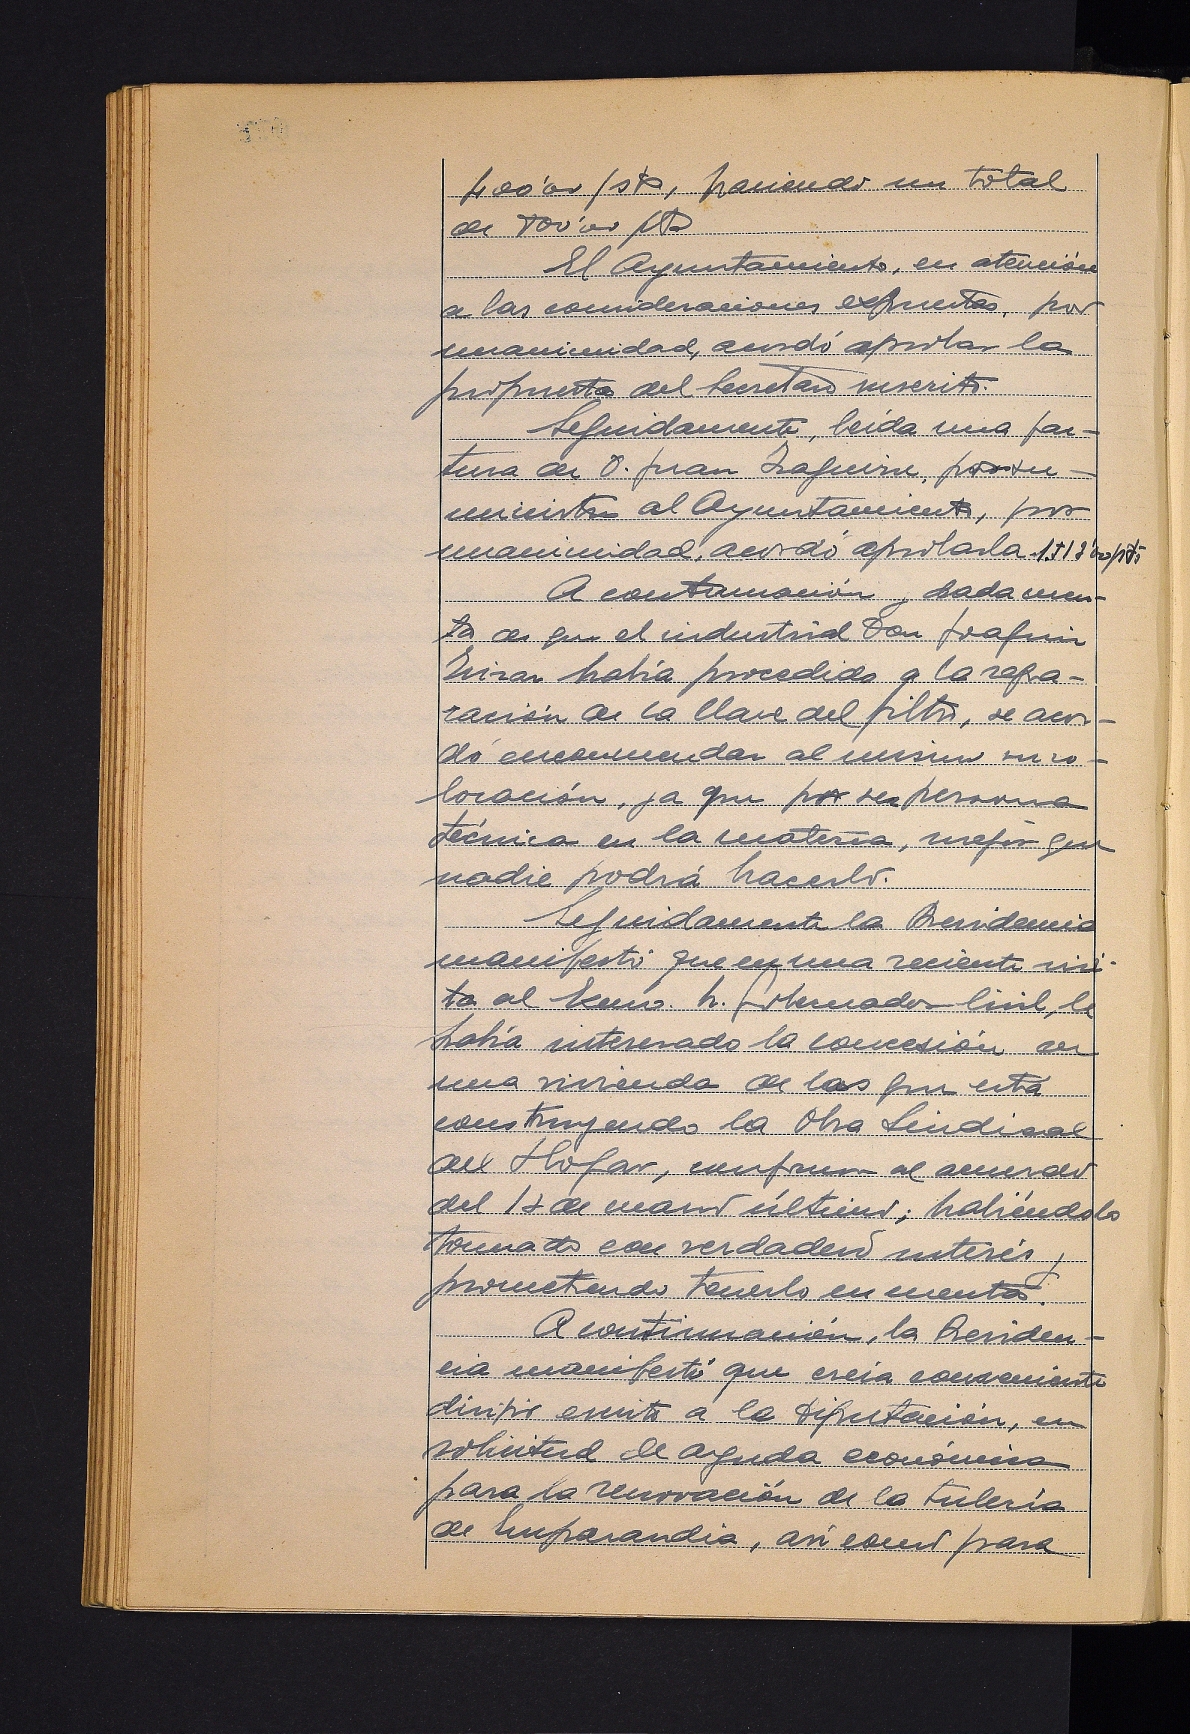 400'00 pts, haciendo un total
de 800'00 pts
El Ayuntamiento, en atención
a las consideraciones expuestas, por
unanimidad, acordó aprobar la
propuesta del Secretario suscrito.
Seguidamente, leída una fac-
tura de D. Juan Izaguirre, por su-
ministro al Ayuntamiento, por
unanimidad, acordó aprobarla
A continuación, y dada cuen-
ta de que el industrial Don Joaquin
había procedido a la repa-
ración de la llave del filtro, se acor-
dó encomendar al mismo su co-
locación, ya que por ser persona
técnica en la materia, mejor que
nadie podrá hacerlo.
Seguidamente la Presidencia
manifestó que en una reciente visi-
ta al Excmo. Sr. Gobernador Civil, le
había interesado la concesión de
una vivienda de las que está
construyendo la Obra Sindical
del Hogar, conforme al acuerdo
del de marzo último; habiéndolo
tomado con verdadero interés y
prometiendo tenerlo en cuenta.
A continuación, la Presiden-
cia manifestó que creía conveniente
dirigir escrito a la Diputación, en
solicitud de ayuda económica
para la renovación de la tubería
de Emparandia, así como para